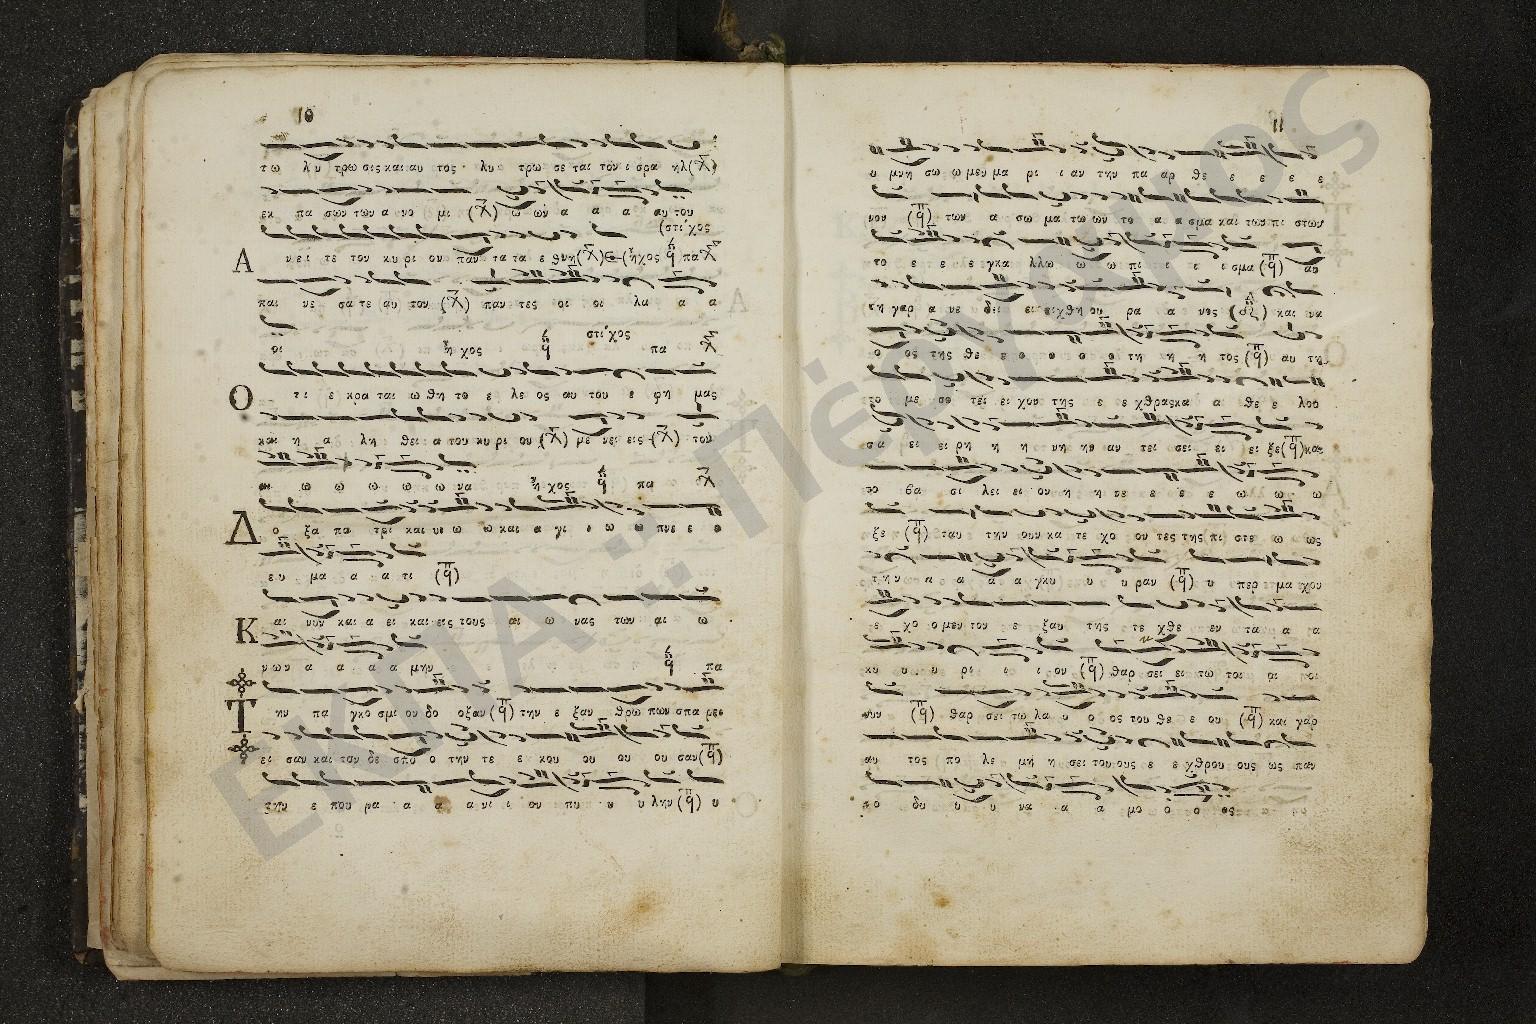 10
τω λυ τρω σις και αυ τος λυ τρω σε ται τον ι σρα ηλ
εκ πα σων των α νο μι ω ων α α α αυ του
(στίχος
Α νει τε τον κυ ρι ον παν τα τα ε θνη (ἦχος πα
παι νε σα τε αυ τον παν τες οι οι λα α α
στίχος
οι ἦχος πα
Ο τι ε κρα ται ω θη το ε λε ος αυ του ε φη μας
και η α λη θει α του κυ ρι ου με νει εις τον
αι ω ω ω ω ω να ἦχος πα
Δ ο ξα πα τρι και υι ω ω και α γι ι ω ω πνε ε ε
ευ μα α α τι
Κ αι νυν και α ει και εις τους αι ω νας των αι ω
νων α α α α μην πα
Τ ην πα γκο σμι ον δο οξαν την ε ξαν θρω πων σπα ρει
ει σαν και τον δε σπο ο την τε ε κου ου ου ου σαν
την ε που ρα α α α νι ι ον πυ υ υ λην υ
11
υ μνη σω ω μεν μα ρι ι αν την πα αρ θε ε ε ε ε
νον των α σω μα τω ων το α α σμα και των πι στων
το ε ε ε ε γκα λλω ω ω πι ι ι ι ι σμα αυ
τη γαρ α νε δει ει ειχθη ου ρα α νος και να
ο ος της θε ε ο ο ο ο τη τη η τος αυ τη
το με σο τει ει χον της ε ε χθρας κα α θε ε λου
σα ει ει ρη η η νη ην αν τει σει ει ει ξε και
το βα σι λει ει ον η η νε ε ε ε ω ω ω
ξε ταυ την ουν κα τε χο ον τες της πι στε ω ως
την α α α α γκυ υ υ υ ραν υ περ μα χον
ε χο ο μεν τον ε ξαυ της τε χθε εν τα α α
κυ υ υ υ ρι ι ι ι ον θαρ σει ει τω τοι οι νυ
νυν θαρ σει τω λα ο ο ος του θε ε ου και γαρ
αυ τος πο λε μη η σει τους ε ε χθρου ους ως παν
το δυ υ υ να α α μο ο ο ος